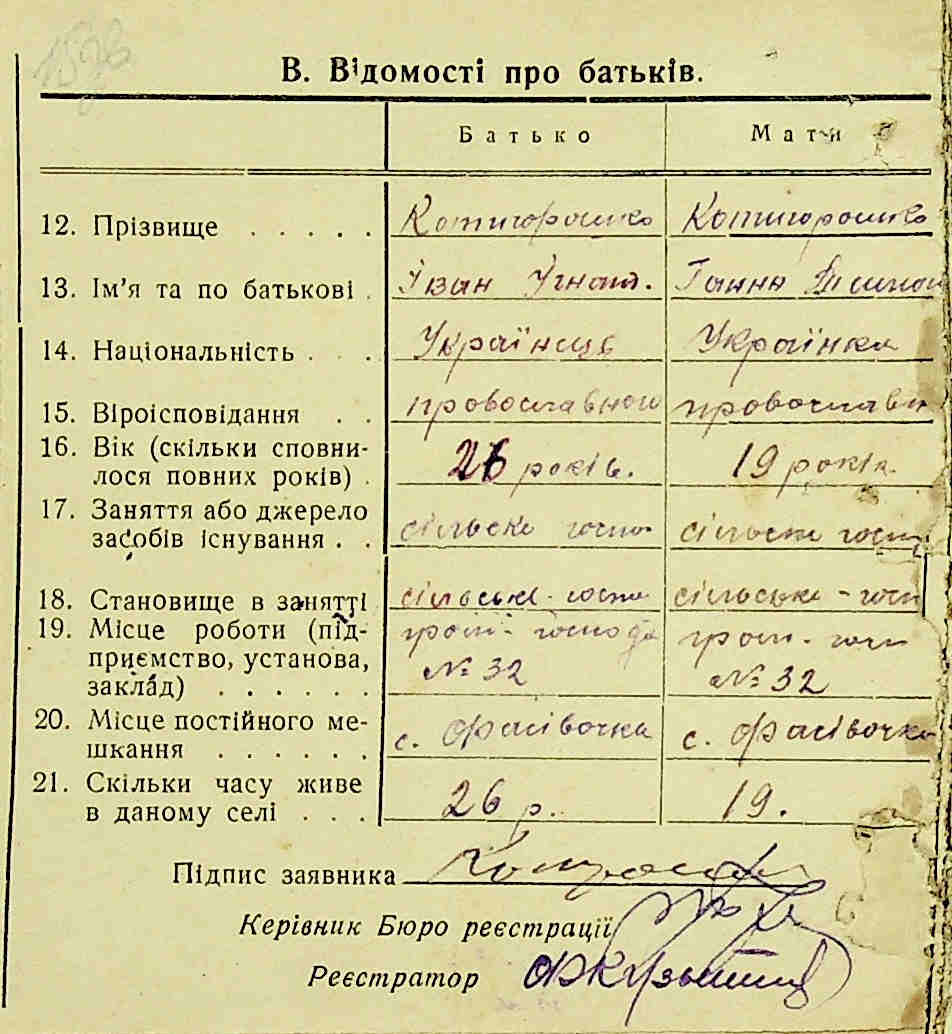 В. Відомості про батьків.
Батько Мати
12. Прізвище . . . . . Котигорошко Котигорошко
13. Ім'я та по батькові . Іван Ігнат. Ганна
14. Національність . . . Українець Українка
15. Віроісповідання . . провославного провославн
16. Вік (скільки сповни-
лося повних років) . 26 років. 19 років.
17. Заняття або джерело
засобів існування . . сільске госпо сільске госп
18. Становище в занятті сільське-госпо сільське-госп
19. Місце роботи (під- гром-господа гром-госп
приємство, установа,
заклад) . . . . . . № 32 № 32
20. Місце постійного ме-
шкання . . . . . . с. Фасівочка с. Фасівочка
21. Скільки часу живе
в даному селі . . . 26 р. 19.
Підпис заявника
Керівник Бюро реєстрації
Реєстратор